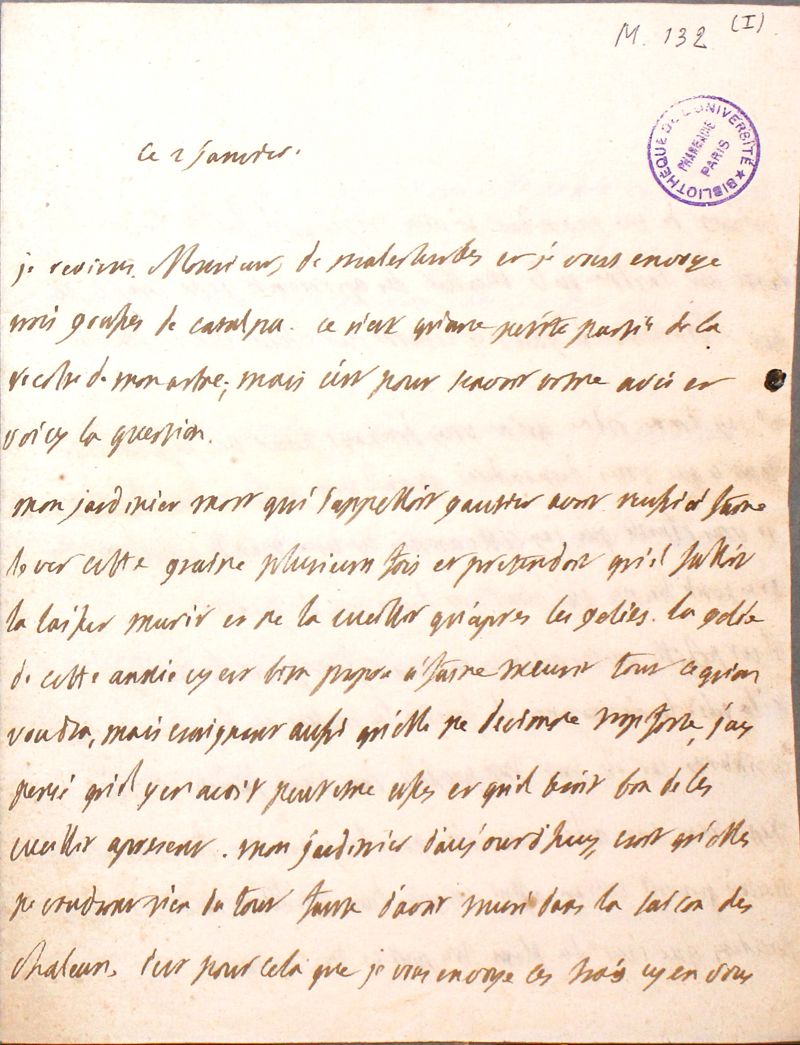 M. 132 (I)
BIBLIOTHÈQUE DE L'UNIVERSITÉ
PHARMACIE
PARIS
ce 2 janvier.
je reviens, Monsieur, de malesherbes et je vous envoye
trois gousses de catalpa. ce n'est qu'une petite partie de la
recolte de mon arbre, mais c'est pour scavoir votre avis et
voicy la question.
mon jardinier mort qui s'appelloit gautier avoit reussi à faire
lever cette graine plusieurs fois et pretendoit qu'il falloit
la laisser murir et ne la cueillir qu'apres les gelées. la gelée
de cette année cy est bien propre à faire meurir tout ce qu'on
voudra, mais craignant aussi qu'elle ne devienne trop forte, j'ay
pensé qu'il y en avoit peut etre assés et qu'il seroit bon de les
cueillir apresent. mon jardinier d'aujourd'huy croit qu'elles
ne vaudront rien du tout faute d'avoir muri dans la saison des
chaleurs. c'est pour cela que je vous envoye ces trois cy en vous